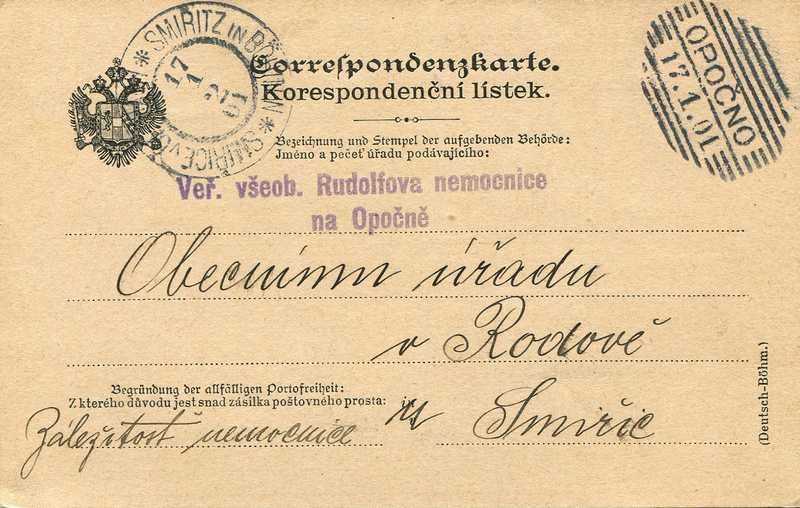 SMIŘITZ IN BÖHMEN * SMIŘICE V Č. *
17
1
01
OPOČNO
17.1.01
Correspondenzkarte.
Korespondenční lístek.
Bezeichnung und Stempel der aufgebenden Behörde:
Jméno a pečeť úřadu podávajícího:
Veř. všeob. Rudolfova nemocnice
na Opočně
Obecnímu úřadu
v Rodově
Begründung der allfälligen Portofreiheit:
Z kterého důvodu jest snad zásilka poštovného prosta:
Smiřic
Záležitost nemocnice
(Deutsch-Böhm.)